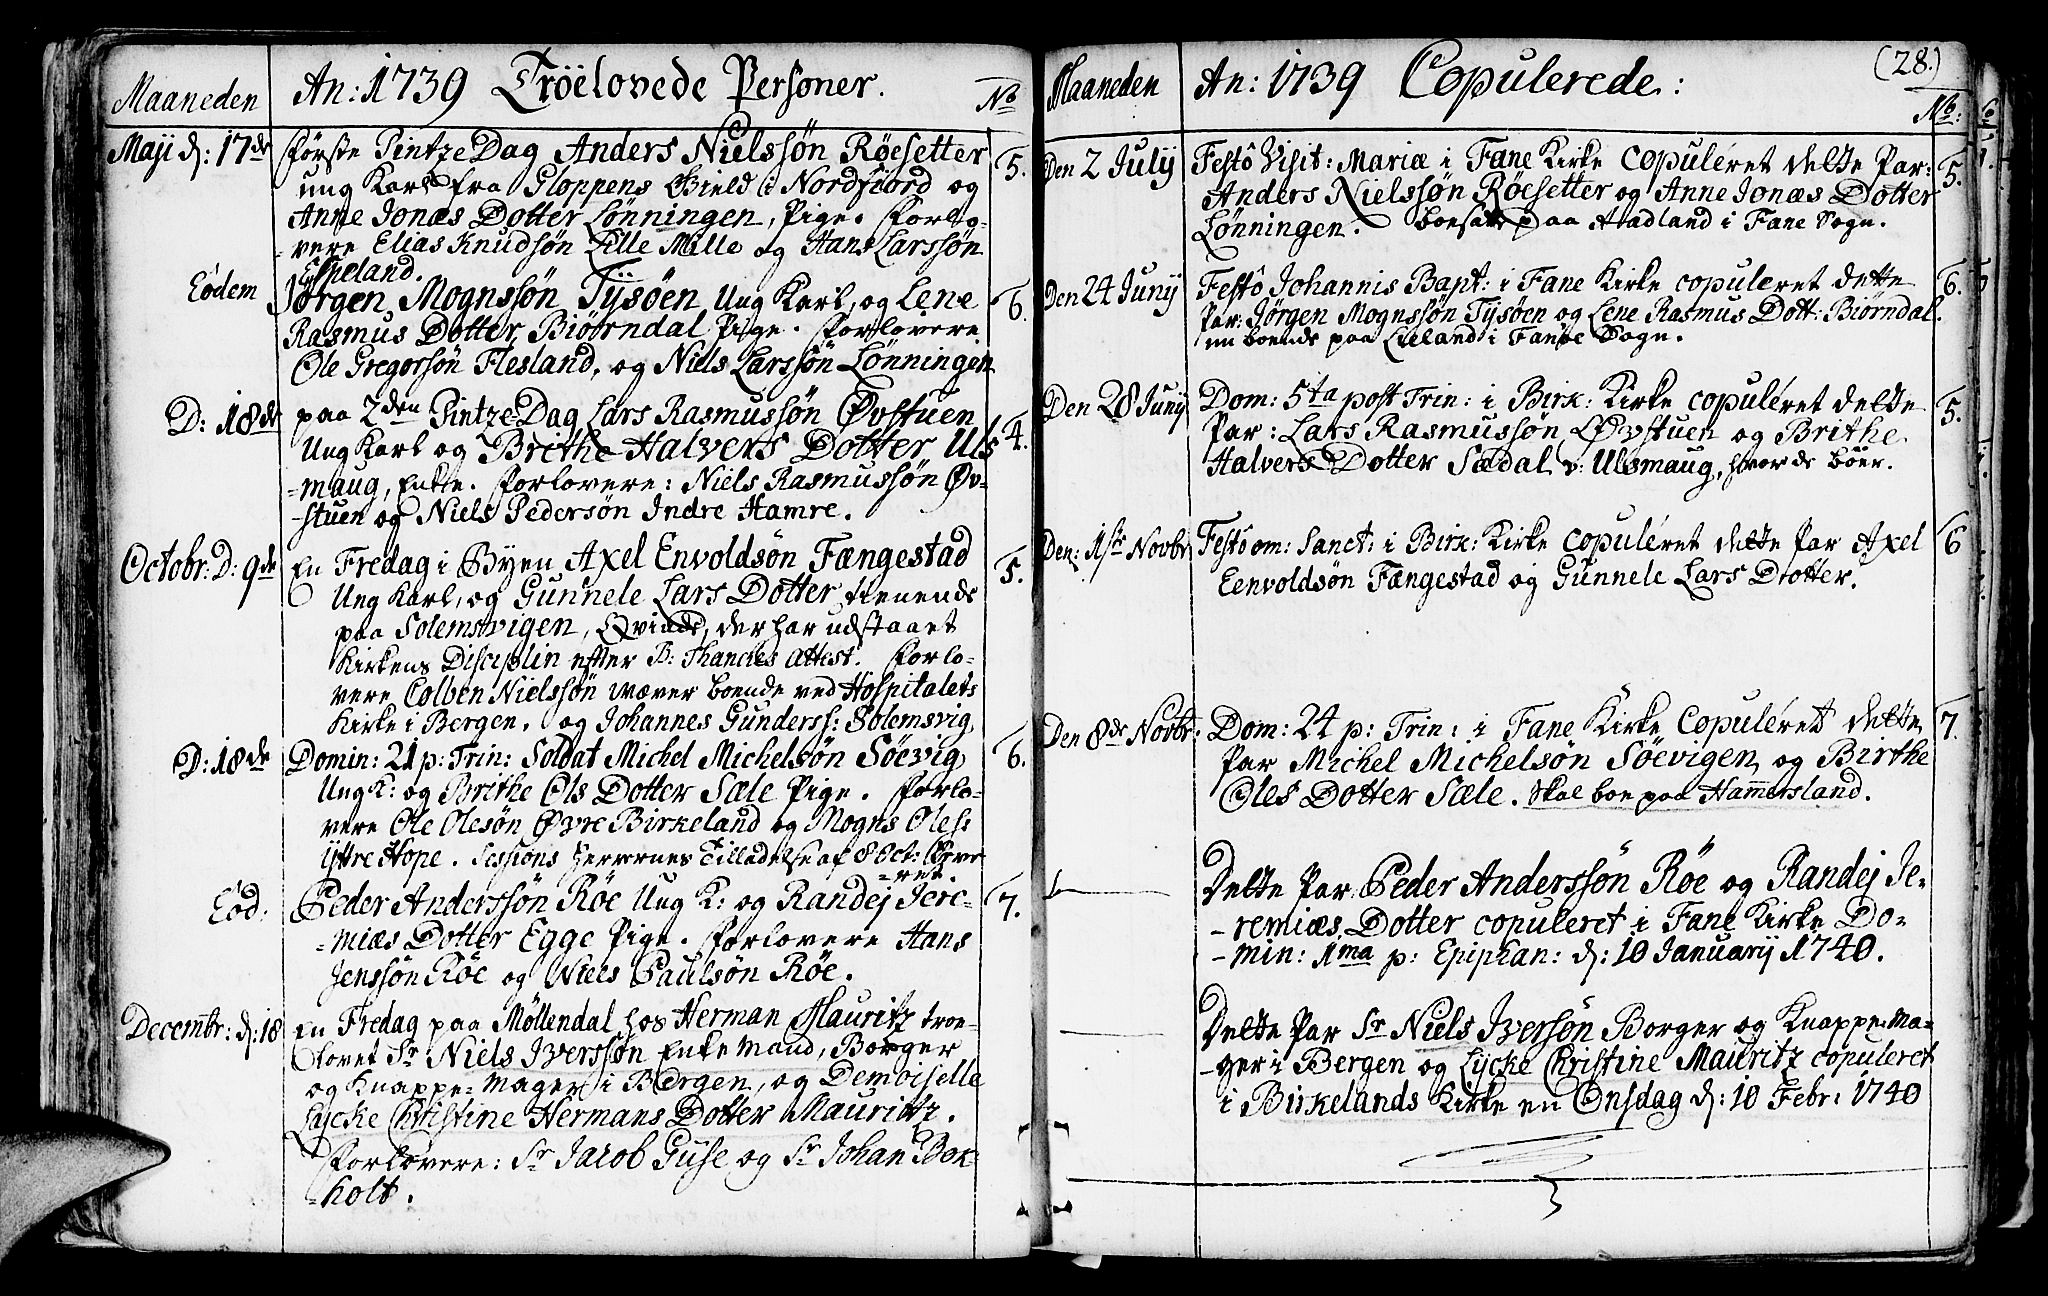 Maaneden An: 1739 Tröelovede Personer. No
Maji d: 17de Förste PintzeDag Anders Nielssön Röesetter 5.
ung Karl fra Gloppens Gield i Nordfiord og
Anne Jonæs Dotter Lönningen, Pige. Forlo-
-vere Elias Knudsön Lille Milde og Hans Larssön
Espeland.
Eodem Jörgen Mognssön Tÿsöen Ung Karl, og Lene 6.
Rasmus Dotter Biöörndal Pige. Forlovere
Ole Gregorsön Flesland, og Niels Larssön Lönningen
D: 18de paa 2den PintzeDag Lars Rasmussön Øvstuen 4.
Ung Karl og Brithe Halvers Dotter Uls
-maug, Enke. Forlovere: Niels Rasmussön Øv-
-stuen og Niels Pedersön Indre Hamre.
Octobr: D: 9de En Fredag i Byen Axel Envoldsön Fængestad 5.
Ung Karl, og Gunnele Lars Dotter tienende
paa Solemsvigen, Qvinde, der har udstaaet
Kirkens Disciplin efter B: Thanches Attest. Forlo-
vere Colben Nielssön wæver boende ved Hospitalets
Kirke i Bergen, og Johannes Gunderss: Solemsvig
D: 18de Domin: 21 p: Trin: Soldat Michel Michelsön Söevig 6.
Ung K: og Brithe Ols Dotter Sæle Pige. Forlo-
vere Ole Olesön Øvre Birkeland og Mogns Oles:
Ÿttre Hope. Sessions Herrernes Tilladelse af 8 Oct:
Eod: Peder Anderssön Röe Ung K: og Randej Jere- 7.
-miæs Dotter Egge Pige. Forlovere Hans
Jenssön Röe og Niels Paulsön Röe.
Decembr: d: 18 En Fredag paa Möllendal hos Herman Mauritz troe-
lovet Sr Niels Iverssön Enke Mand, Borger
og Knappe-Mager i Bergen, og Demoiselle
Lycke Christine Hermans Dotter Mauritz.
Forlovere: Sr Jacob Guse og Sr Johan Bok-
-holt.
Maaneden An: 1739 Copulerede: (28.)
No:
Den 2 Julÿ Festo Visit: Mariæ i Fane Kirke copuleret dette Par: 5.
Anders Nielssön Röesetter og Anne Jonæs Dotter
Lönningen. boesatt paa Stadland i Fane Sogn.
Den 24 Junÿ Festo Johannis Bapt: i Fane Kirke copuleret dette 6.
Par: Jörgen Mognssön Tÿsöen og Lene Rasmus Dott: Biörndal.
nu boende paa Lieland i Fanöe Sogn.
Den 28 Junÿ Dom: 5ta post Trin: i Birk: Kirke copuleret dette 5.
Par: Lars Rasmussön Øvstuen og Brithe
Halvers Dotter Sædal v: Ulsmaug, hvor de böer.
Den: 1ste Novbr Festo om: Sanct: i Birk: Kirke copuleret dette Par Axel 6
Eenvoldsön Fængestad og Gunnele Lars Dotter.
Den 8de Novbr: Dom: 24 p: Trin: i Fane Kirke Copuleret dette 7.
Par Michel Michelsön Söevigen og Birthe
Oles Dotter Sæle. skal boe paa Hammersland.
Dette Par Peder Anderssön Röe og Randej Je-
-remiæs Dotter copuleret i Fane Kirke Do-
-min: 1ma p: Epiphan: d: 10 Januarij 1740.
Dette Par Sr Niels Iversön Borger og Knappe-Ma-
-ger i Bergen og Lycke Christine Mauritz copuleret
i Birkelands Kirke en Onsdag d: 10 Febr: 1740